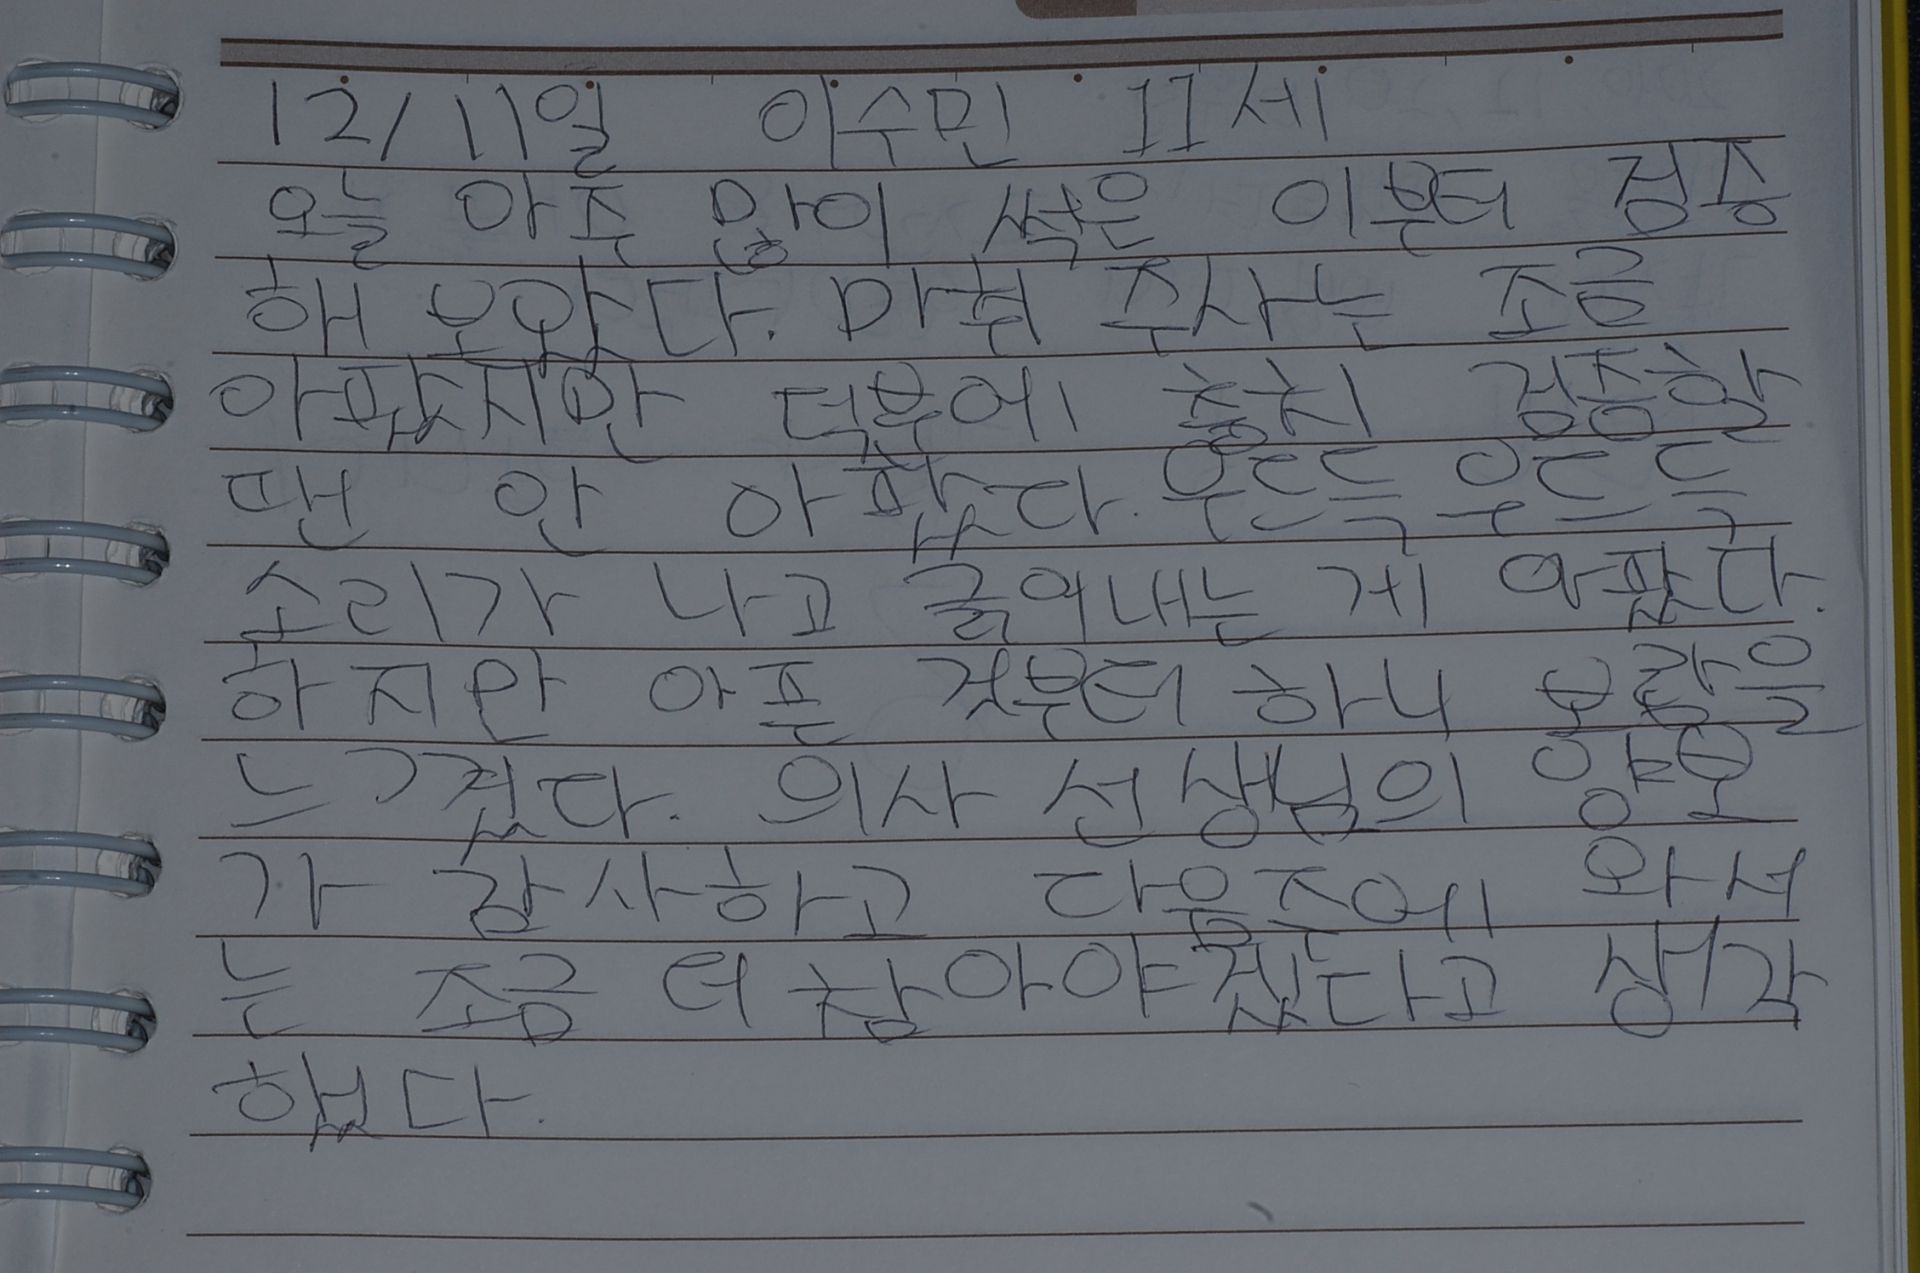 12/11일 이수민 11세
오늘 아주 많이 썩은 이부터 검승
해 보았다. 마취 주사는 조금
아팠지만 덕분에 충치 검증할
땐 안 아팠다. 우드득 우드득
소리가 나고 긁어내는 게 아팠다.
하지만 아픈 것부터 하니 보람을
느꼈다. 의사 선생님의
가 감사하고 다음주에 와서
는 조금 더 참아야겠다고 생각
했다.